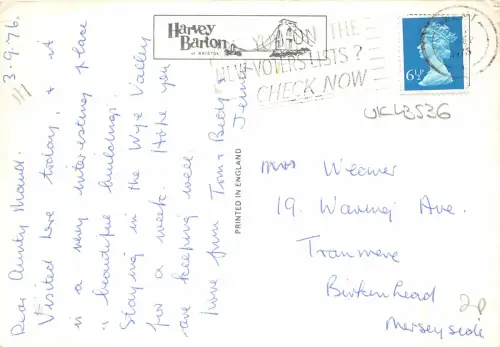 3-9-76.
Dear Aunty Maud.
Visited here today, & it
is a very interesting place
& beautiful buildings.
Staying in the Wye Valley
for a week. Hope you
are keeping well.
Love from Tom & Betty &
PRINTED IN ENGLAND
Harvey
Barton
OF BRISTOL
YOU ON THE
NEW VOTERS LISTS?
CHECK NOW
6½P
UKL3536
Mrs Weaver
19. Waring Ave.
Tranmere
Birkenhead
Merseyside